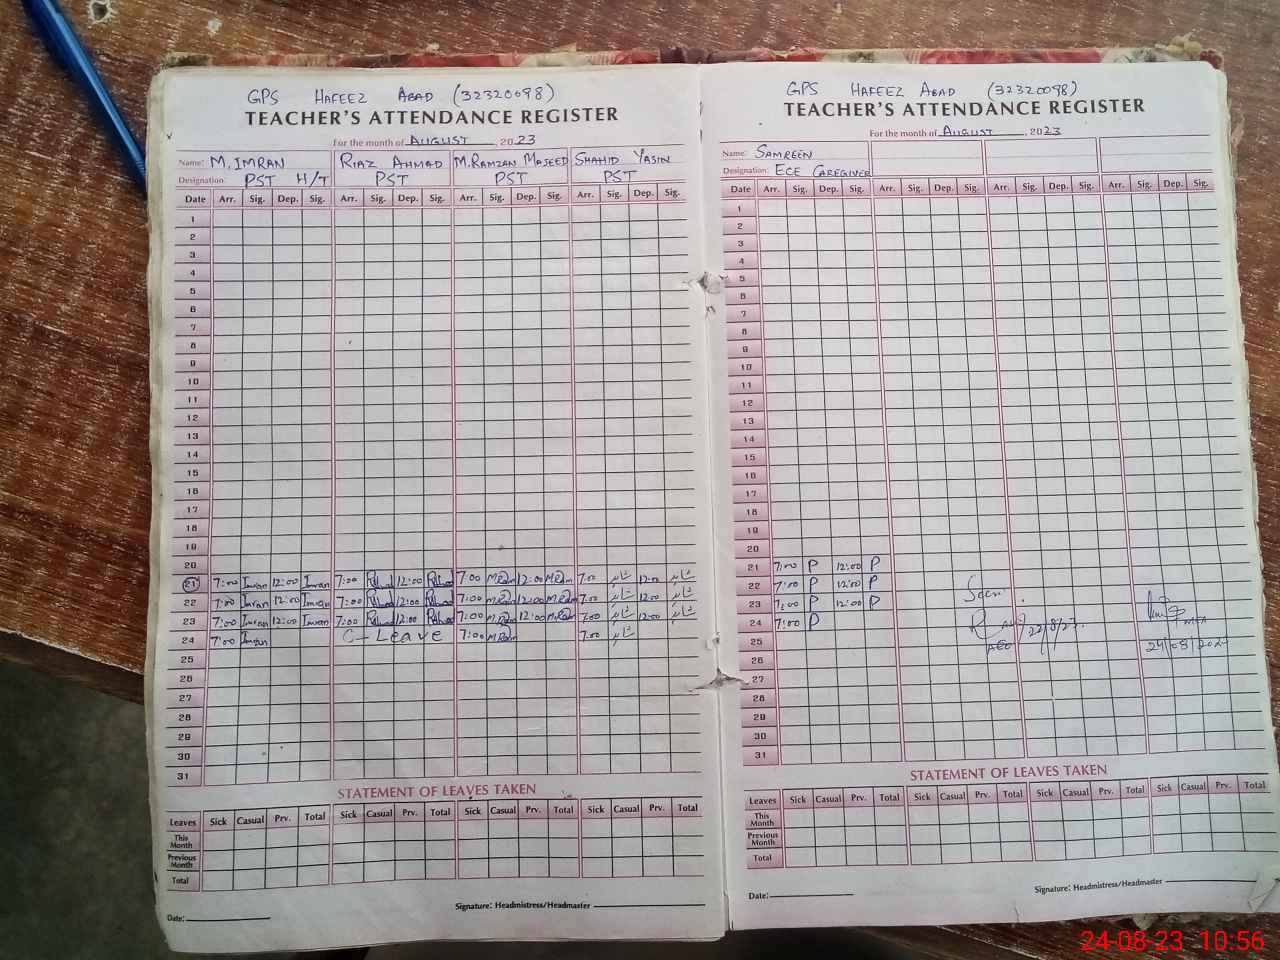 GPS HAFEEZ ABAD (32320098)
TEACHER'S ATTENDANCE REGISTER
For the month of AUGUST, 2023
Name: M. IMRAN RIAZ AHMAD M.RAMZAN MAJEED SHAHID YASIN
Designation: PST H/T PST PST PST
Date Arr. Sig. Dep. Sig. Arr. Sig. Dep. Sig. Arr. Sig. Dep. Sig. Arr. Sig. Dep. Sig.
1
2
3
4
5
6
7
8
9
10
11
12
13
14
15
16
17
18
19
20
21 7:00 Imran 12:00 Imran 7:00 12:00 7:00 12:00 7:00 12:00
22 7:00 Imran 12:00 Imran 7:00 12:00 7:00 12:00 7:00 12:00
23 7:00 Imran 12:00 Imran 7:00 12:00 7:00 12:00 7:00 12:00
24 7:00 Imran C-Leave 7:00 7:00
25
26
27
28
29
30
31
STATEMENT OF LEAVES TAKEN
Leaves Sick Casual Prv. Total Sick Casual Prv. Total Sick Casual Prv. Total Sick Casual Prv. Total
This Month
Previous Month
Total
Date: Signature: Headmistress/Headmaster
GPS HAFEEZ ABAD (32320098)
TEACHER'S ATTENDANCE REGISTER
For the month of AUGUST, 2023
Name: SAMREEN
Designation: ECE CAREGIVER
Date Arr. Sig. Dep. Sig. Arr. Sig. Dep. Sig. Arr. Sig. Dep. Sig. Arr. Sig. Dep. Sig.
1
2
3
4
5
6
7
8
9
10
11
12
13
14
15
16
17
18
19
20
21 7:00 P 12:00 P
22 7:00 P 12:00 P
23 7:00 P 12:00 P
24 7:00 P
22/8/23.
25 AEO
26
27
28
29
30
31
STATEMENT OF LEAVES TAKEN
Leaves Sick Casual Prv. Total Sick Casual Prv. Total Sick Casual Prv. Total Sick Casual Prv. Total
This Month
Previous Month
Total
Date: Signature: Headmistress/Headmaster
24-08-23 10:56